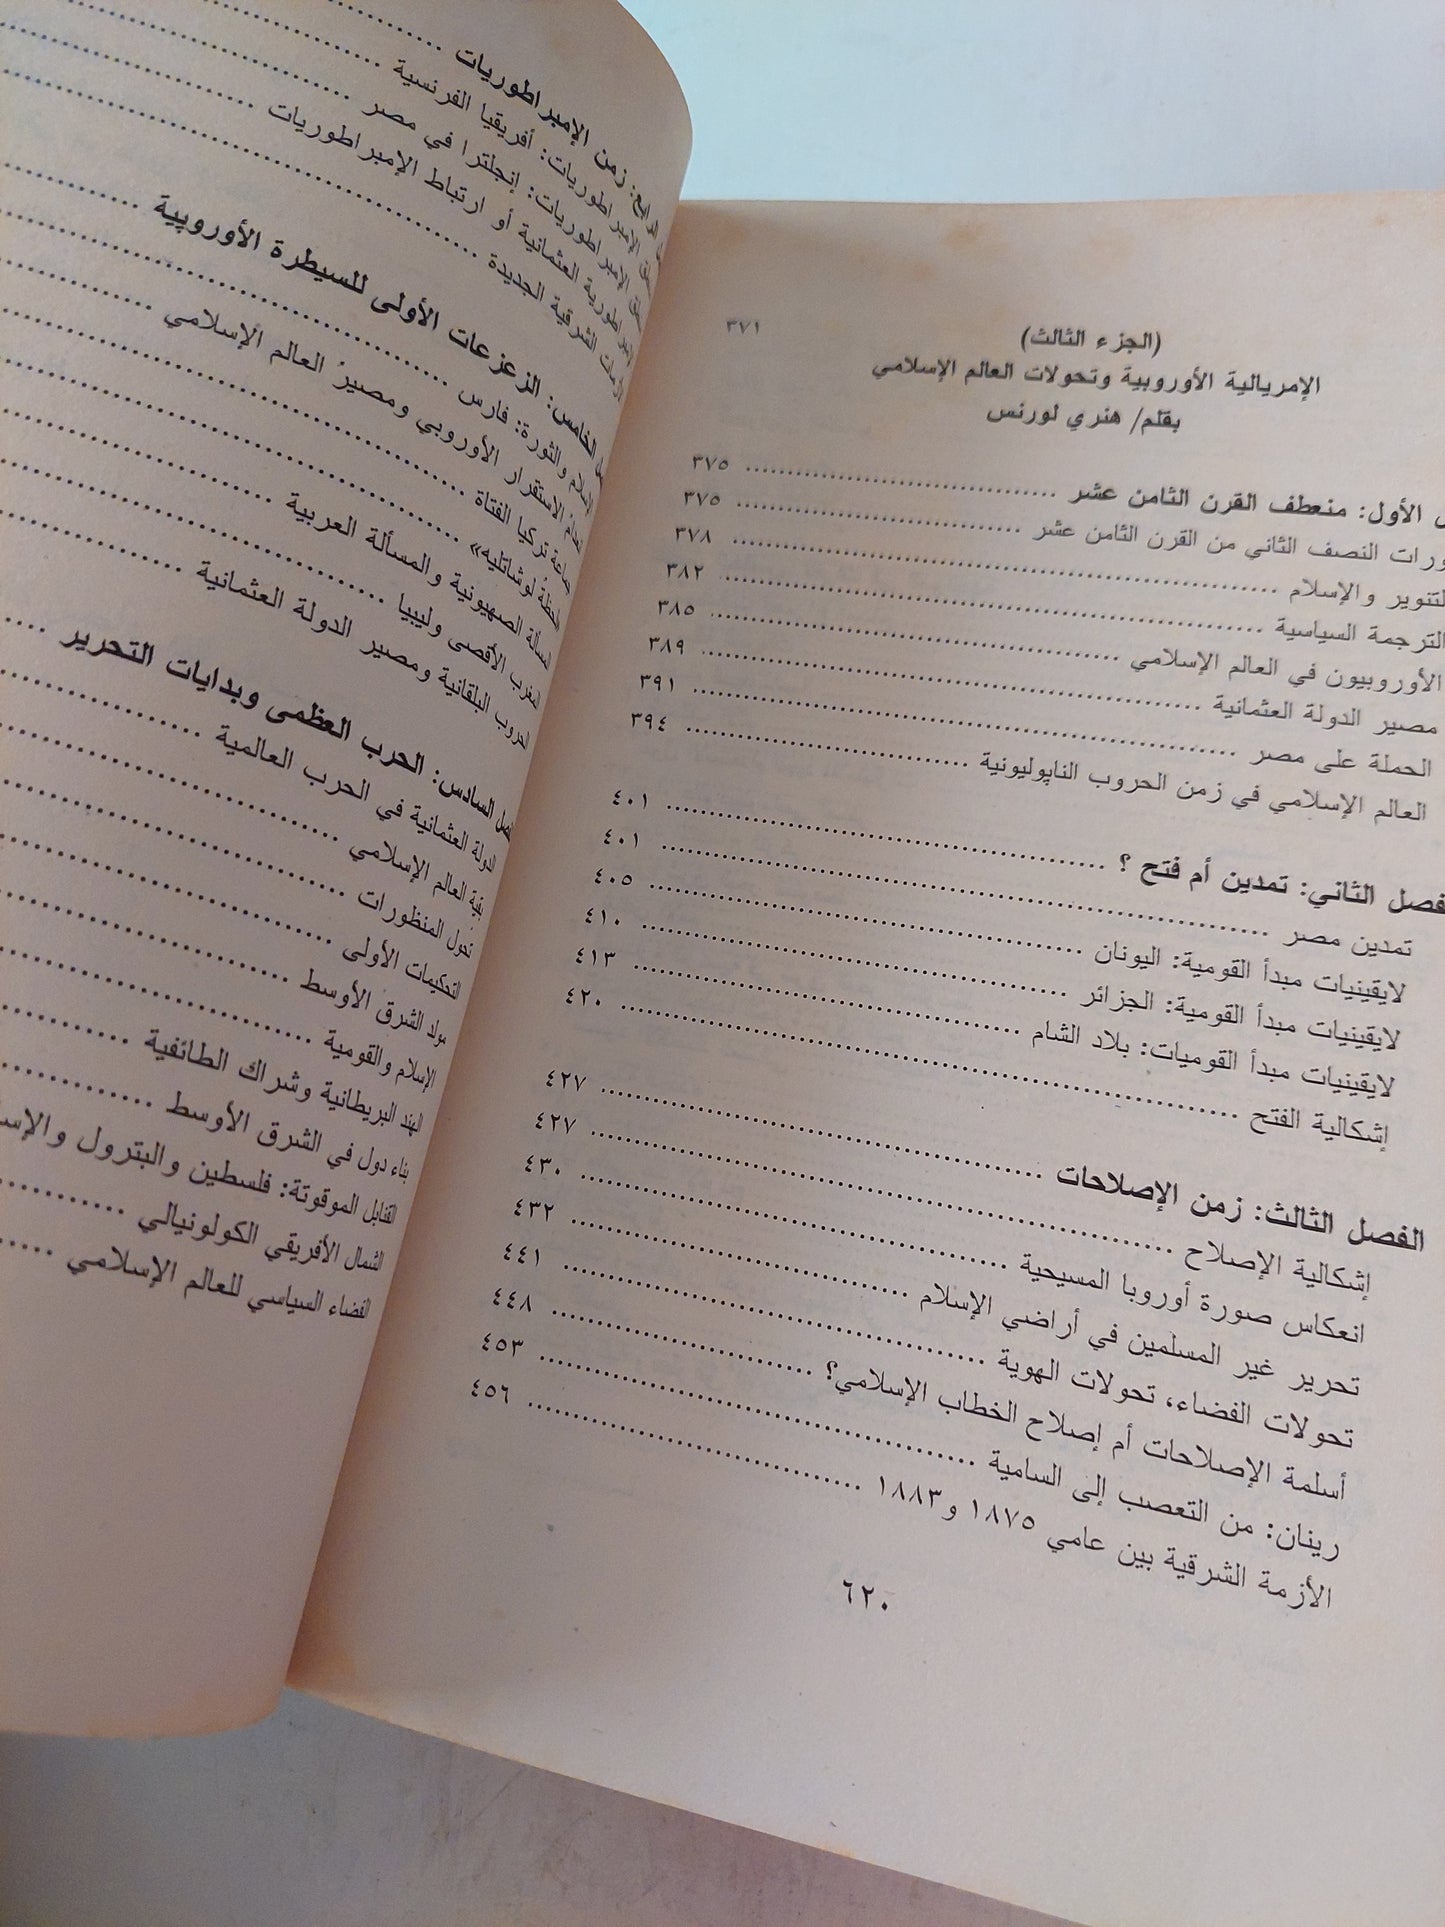 (الجزء الثالث) ٣٧١
الإمريالية الأوروبية وتحولات العالم الإسلامي
بقلم/ هنري لورنس
الأول: منعطف القرن الثامن عشر ٣٧٥
النصف الثاني من القرن الثامن عشر ٣٧٥
والإسلام ٣٧٨
الترجمة السياسية ٣٨٢
الأوروبيون في العالم الإسلامي ٣٨٥
مصير الدولة العثمانية ٣٨٩
الحملة على مصر ٣٩١
العالم الإسلامي في زمن الحروب الناپوليونية ٣٩٤
الثاني: تمدين أم فتح ؟ ٤٠١
تمدين مصر ٤٠١
لايقينيات مبدأ القومية: اليونان ٤٠٥
لايقينيات مبدأ القومية: الجزائر ٤١٠
لايقينيات مبدأ القوميات: بلاد الشام ٤١٣
إشكالية الفتح ٤٢٠
الفصل الثالث: زمن الإصلاحات ٤٢٧
إشكالية الإصلاح ٤٢٧
انعكاس صورة أوروبا المسيحية ٤٣٠
تحرير غير المسلمين في أراضي الإسلام ٤٣٢
تحولات الفضاء، تحولات الهوية ٤٤١
أسلمة الإصلاحات أم إصلاح الخطاب الإسلامي؟ ٤٤٨
رينان: من التعصب إلى السامية ٤٥٣
الأزمة الشرقية بين عامي ١٨٧٥ و١٨٨٣ ٤٥٦
٦٢٠
زمن الإمبراطوريات
الإمبراطوريات: أفريقيا الفرنسية
الإمبراطوريات: إنجلترا في مصر
العثمانية أو ارتباط الإمبراطوريات
الشرقية الجديدة
الخامس: الزعزعات الأولى للسيطرة الأوروپية
والثورة: فارس
الاستقرار الأوروبي ومصير العالم الإسلامي
تركيا الفتاة
لوشاتلييه»
الصهيونية والمسألة العربية
المغرب الأقصى وليبيا
الحروب البلقانية ومصير الدولة العثمانية
السادس: الحرب العظمى وبدايات التحرير
الدولة العثمانية في الحرب العالمية
بقية العالم الإسلامي
تحول المنظورات
التحكيمات الأولى
مولد الشرق الأوسط
الإسلام والقومية
الهند البريطانية وشراك الطائفية
بناء دول في الشرق الأوسط
القنابل الموقوتة: فلسطين والبترول
الشمال الأفريقي الكولونيالي
الفضاء السياسي للعالم الإسلامي